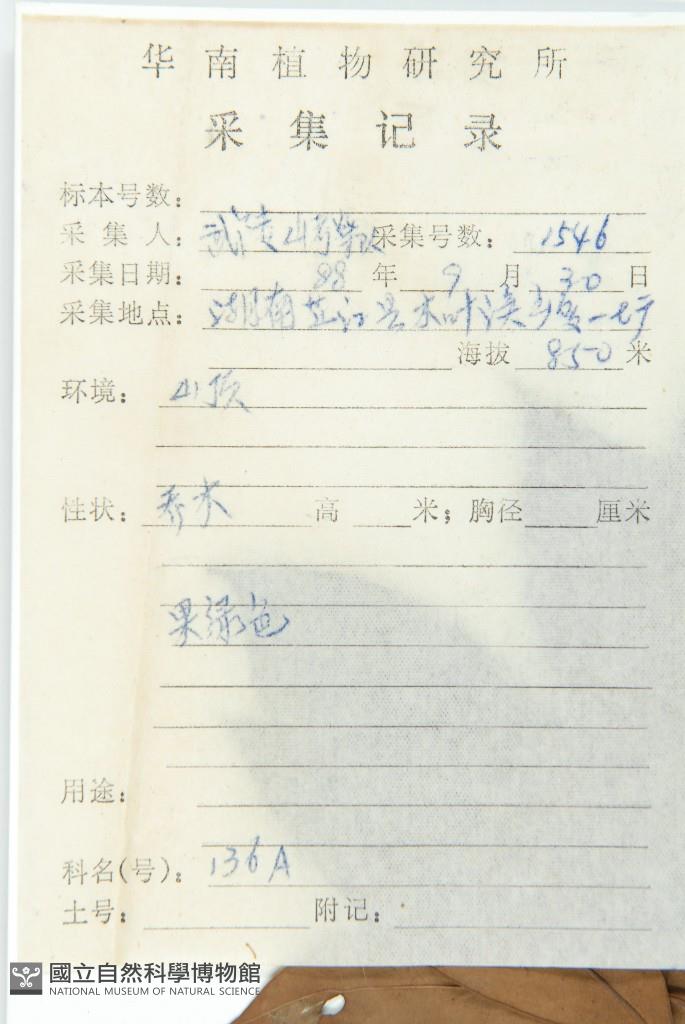 华南植物研究所
采集记录
标本号数：
采集人：武陵山考察队 采集号数：1546
采集日期：88年9月30日
采集地点：湖南芷江县木叶溪
海拔 850 米
环境：山顶
性状：乔木 高 米；胸径 厘米
果绿色
用途：
科名(号)：136A
土号： 附记：
國立自然科學博物館
NATIONAL MUSEUM OF NATURAL SCIENCE